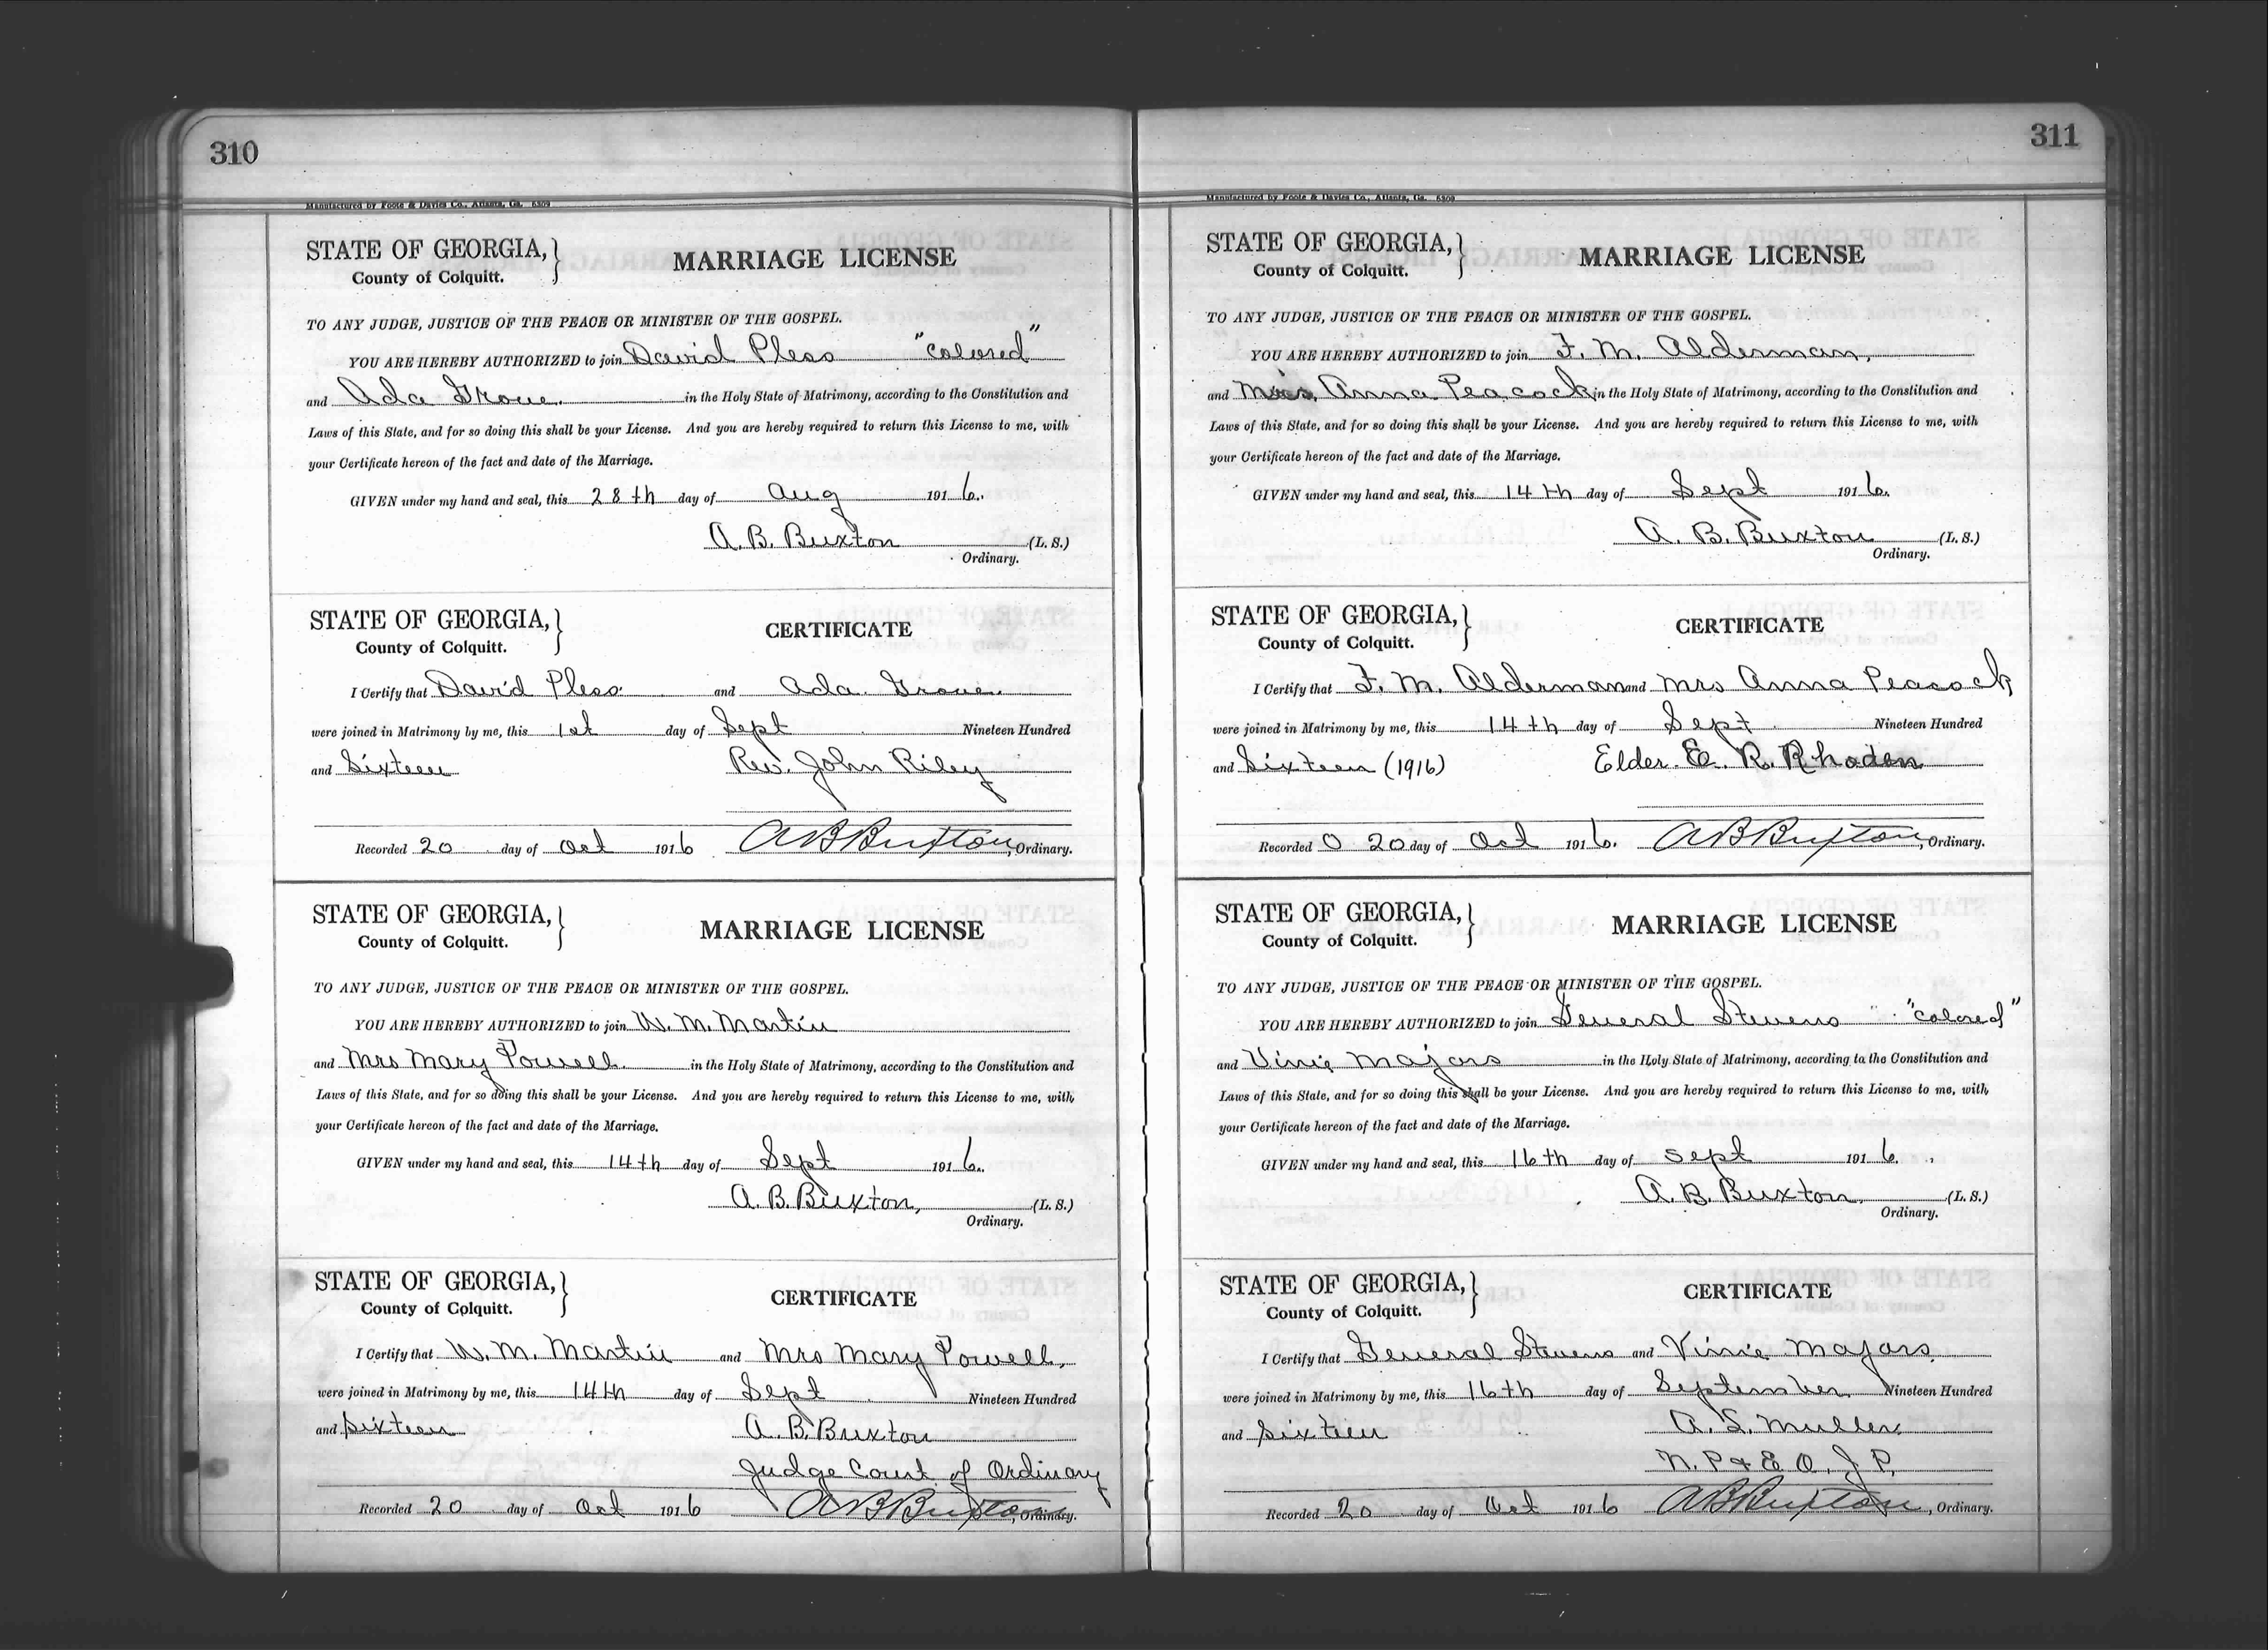 310
Manufactured by Foote & Davies Co., Atlanta, Ga. 6309
STATE OF GEORGIA,
County of Colquitt.
MARRIAGE LICENSE
TO ANY JUDGE, JUSTICE OF THE PEACE OR MINISTER OF THE GOSPEL.
YOU ARE HEREBY AUTHORIZED to join David Pless "colored"
and Ada Grove. in the Holy State of Matrimony, according to the Constitution and
Laws of this State, and for so doing this shall be your License. And you are hereby required to return this License to me, with
your Certificate hereon of the fact and date of the Marriage.
GIVEN under my hand and seal, this 28th day of Aug 1916.
A. B. Buxton (L. S.)
Ordinary.
STATE OF GEORGIA,
County of Colquitt.
CERTIFICATE
I Certify that David Pless and Ada Grove.
were joined in Matrimony by me, this 1st day of Sept Nineteen Hundred
and Sixteen Rev. John Riley
Recorded 20 day of Oct 1916 A B Buxton, Ordinary.
STATE OF GEORGIA,
County of Colquitt.
MARRIAGE LICENSE
TO ANY JUDGE, JUSTICE OF THE PEACE OR MINISTER OF THE GOSPEL.
YOU ARE HEREBY AUTHORIZED to join W. M. Martin
and Mrs Mary Powell. in the Holy State of Matrimony, according to the Constitution and
Laws of this State, and for so doing this shall be your License. And you are hereby required to return this License to me, with
your Certificate hereon of the fact and date of the Marriage.
GIVEN under my hand and seal, this 14th day of Sept 1916.
A. B. Buxton, (L. S.)
Ordinary.
STATE OF GEORGIA,
County of Colquitt.
CERTIFICATE
I Certify that W. M. Martin and Mrs Mary Powell,
were joined in Matrimony by me, this 14th day of Sept Nineteen Hundred
and Sixteen A. B. Buxton
Judge Court of Ordinary
Recorded 20 day of Oct 1916 A B Buxton, Ordinary.
311
Manufactured by Foote & Davies Co., Atlanta, Ga. 6309
STATE OF GEORGIA,
County of Colquitt.
MARRIAGE LICENSE
TO ANY JUDGE, JUSTICE OF THE PEACE OR MINISTER OF THE GOSPEL.
YOU ARE HEREBY AUTHORIZED to join F. M. Alderman,
and Mrs. Anna Peacock in the Holy State of Matrimony, according to the Constitution and
Laws of this State, and for so doing this shall be your License. And you are hereby required to return this License to me, with
your Certificate hereon of the fact and date of the Marriage.
GIVEN under my hand and seal, this 14th day of Sept 1916.
A. B. Buxton (L. S.)
Ordinary.
STATE OF GEORGIA,
County of Colquitt.
CERTIFICATE
I Certify that F. M. Alderman and Mrs Anna Peacock
were joined in Matrimony by me, this 14th day of Sept Nineteen Hundred
and Sixteen (1916) Elder E. R. Rhoden
Recorded 0 20 day of Oct 1916. A B Buxton, Ordinary.
STATE OF GEORGIA,
County of Colquitt.
MARRIAGE LICENSE
TO ANY JUDGE, JUSTICE OF THE PEACE OR MINISTER OF THE GOSPEL.
YOU ARE HEREBY AUTHORIZED to join General Stevens "colored"
and Vinie Majors in the Holy State of Matrimony, according to the Constitution and
Laws of this State, and for so doing this shall be your License. And you are hereby required to return this License to me, with
your Certificate hereon of the fact and date of the Marriage.
GIVEN under my hand and seal, this 16th day of Sept 1916.
A. B. Buxton (L. S.)
Ordinary.
STATE OF GEORGIA,
County of Colquitt.
CERTIFICATE
I Certify that General Stevens and Vinie Majors.
were joined in Matrimony by me, this 16th day of September Nineteen Hundred
and Sixteen A. S. Muller
N. P & E O. J P.
Recorded 20 day of Oct 1916 A B Buxton, Ordinary.